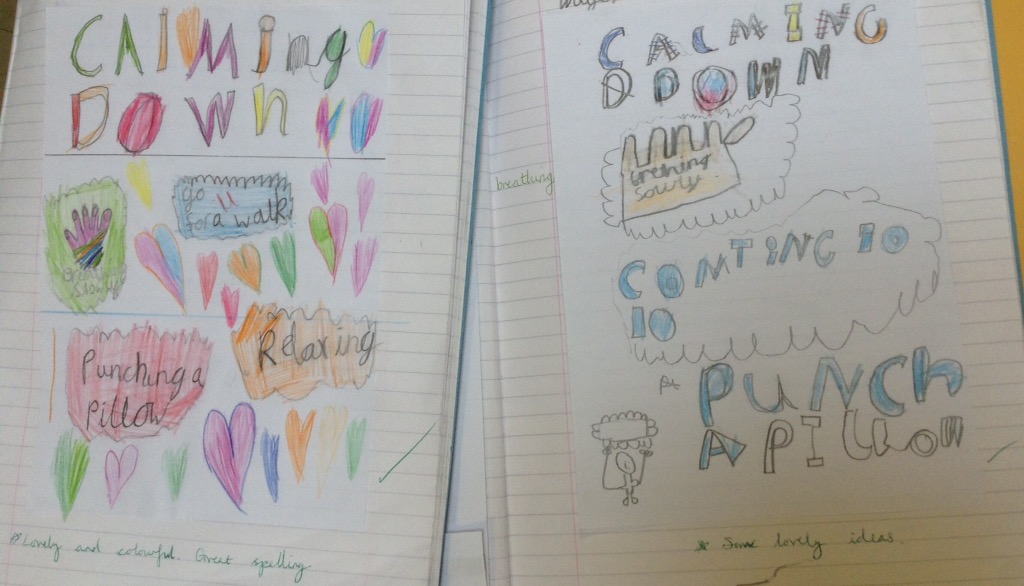 CAlMing
DOWN
go
for a walk
slowly
Punching a
pillow
Relaxing
Lovely and colourful. Great spelling
CALMING
DOWN
brething
sowly
breathing
COMTING 10
10
PUNCH
A PILLLOW
Some lovely ideas.